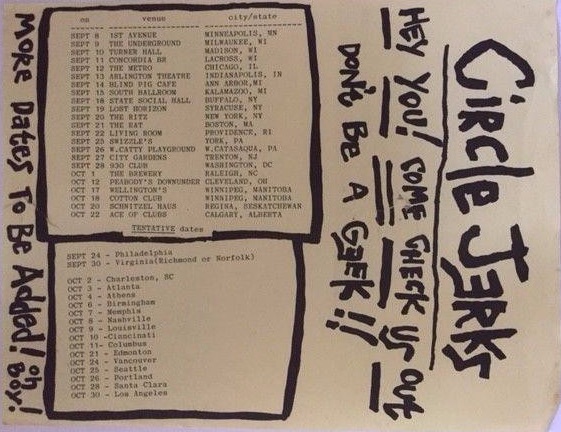 Circle Jerks
HEY YOU! COME CHECK US OUT
DON'T BE A GEEK!!
on venue city/state
SEPT 8 1ST AVENUE MINNEAPOLIS, MN
SEPT 9 THE UNDERGROUND MILWAUKEE, WI
SEPT 10 TURNER HALL MADISON, WI
SEPT 11 CONCORDIA BR LACROSS, WI
SEPT 12 THE METRO CHICAGO, IL
SEPT 13 ARLINGTON THEATRE INDIANAPOLIS, IN
SEPT 14 BLIND PIG CAFE ANN ARBOR,MI
SEPT 15 SOUTH BALLROOM KALAMAZOO, MI
SEPT 18 STATE SOCIAL HALL BUFFALO, NY
SEPT 19 LOST HORIZON SYRACUSE, NY
SEPT 20 THE RITZ NEW YORK, NY
SEPT 21 THE RAT BOSTON, MA
SEPT 22 LIVING ROOM PROVIDENCE, RI
SEPT 25 SWIZZLE'S YORK, PA
SEPT 26 W.CATTY PLAYGROUND W.CATASAQUA, PA
SEPT 27 CITY GARDENS TRENTON, NJ
SEPT 28 930 CLUB WASHINGTON, DC
OCT 1 THE BREWERY RALEIGH, NC
OCT 12 PEABODY'S DOWNUNDER CLEVELAND, OH
OCT 17 WELLINGTON'S WINNIPEG, MANITOBA
OCT 18 COTTON CLUB WINNIPEG, MANITOBA
OCT 20 SCHNITZEL HAUS REGINA, SESKATCHEWAN
OCT 22 ACE OF CLUBS CALGARY, ALBERTA
TENTATIVE dates
SEPT 24 - Philadelphia
SEPT 30 - Virginia(Richmond or Norfolk)
OCT 2 - Charleston, SC
OCT 3 - Atlanta
OCT 4 - Athens
OCT 6 - Birmingham
OCT 7 - Memphis
OCT 8 - Nashville
OCT 9 - Louisville
OCT 10 -Cincinnati
OCT 11- Columbus
OCT 21 - Edmonton
OCT 24 - Vancouver
OCT 25 - Seattle
OCT 26 - Portland
OCT 28 - Santa Clara
OCT 30 - Los Angeles
MORE DATES TO BE ADDED! OH BOY!